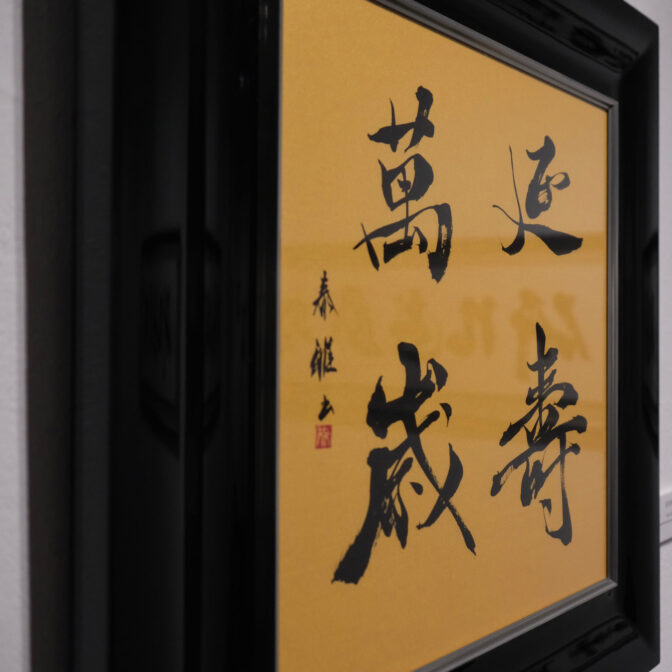 延壽
萬歲
春雅書